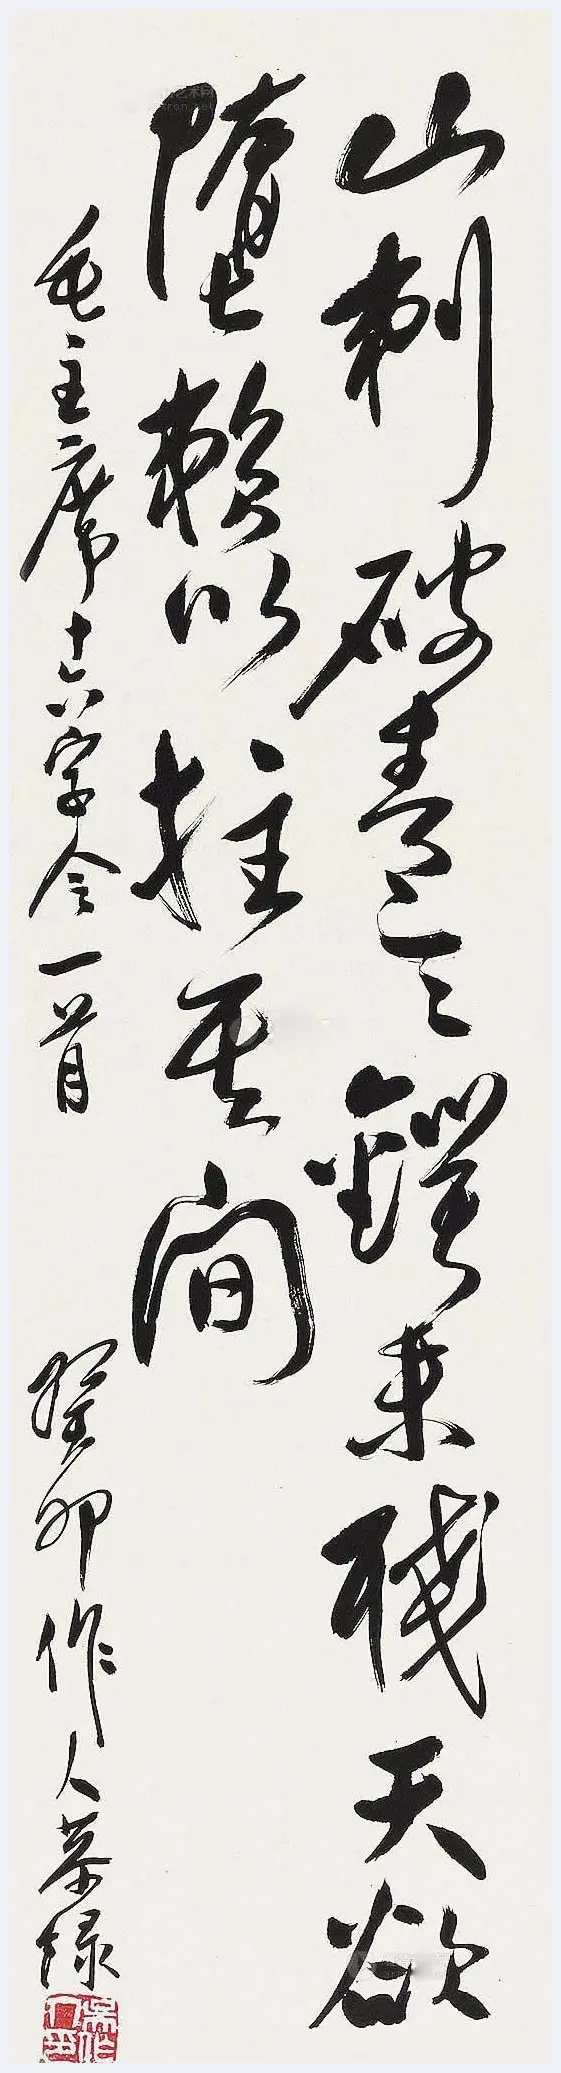 山刺破青天锷未残天欲
堕赖以拄其间
毛主席十六字令一首
癸卯作人恭录